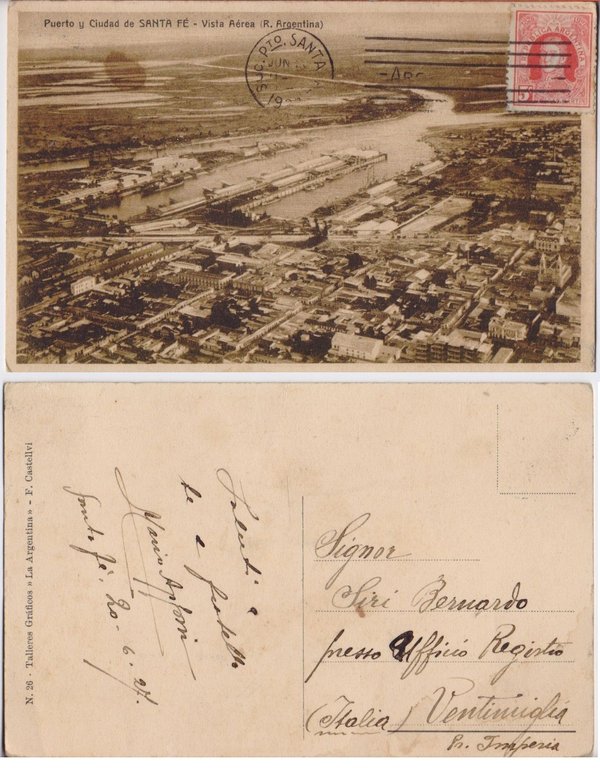 Puerto y Ciudad de SANTA FÉ - Vista Aérea (R. Argentina)
SUC. PTO. SANTA
JUN
REPUBLICA ARGENTINA
5
N. 26 - Talleres Gráficos » La Argentina » - F. Castellvi
Saluti a
te e fratello
Mario
Santa fè. 20-6-27.
Signor
Siri Bernardo
presso Ufficio Registro
(Italia) Ventimiglia
Pr. Imperia